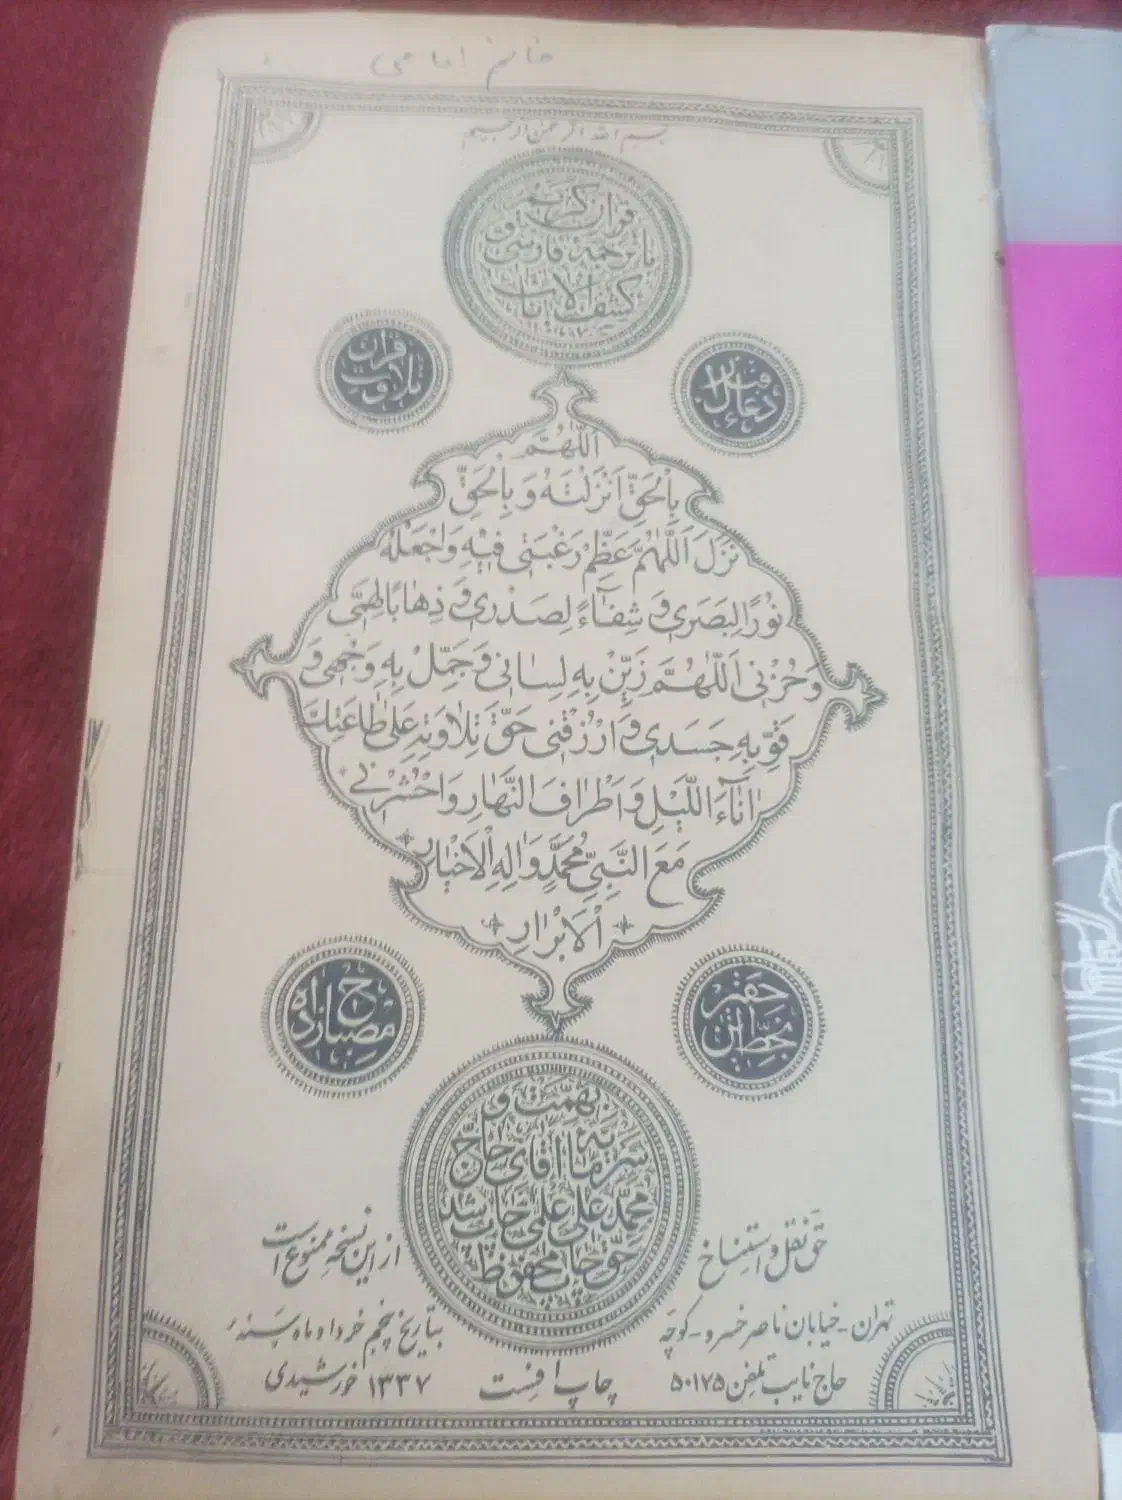 خانم امامی
بسم الله الرحمن الرحیم
قرآن کریم
با ترجمه فارسی و
کشف الآیات
دعای
تلاوت قرآن
اَللّهُمَّ
بِالْحَقِّ اَنْزَلْتَهُ وَ بِالْحَقِّ
نَزَلَ اَللّهُمَّ عَظِّمْ رَغْبَتی فیهِ وَاجْعَلْهُ
نُورًا لِبَصَری وَ شِفاءً لِصَدْری وَ ذِهابًا لِهَمّی
وَ حُزْنی اَللّهُمَّ زَیِّنْ بِهِ لِسانی وَ جَمِّلْ بِهِ وَجْهی وَ
قَوِّ بِهِ جَسَدی وَ ارْزُقْنی حَقَّ تِلاوَتِهِ عَلی طاعَتِکَ
اناءَ اللَّیْلِ وَ اَطْرافَ النَّهارِ وَ احْشُرْنی
مَعَ النَّبِیِّ مُحَمَّدٍ وَ الِهِ الْاَخْیارِ
الْاَبْرارِ
خط این حقیر
ح مصباح زاده
بهمت و
سرمایه آقای حاج
محمد علی علمی چاپ شد
حق چاپ محفوظ
حق نقل و استنساخ
از این نسخه ممنوع است
تهران - خیابان ناصر خسرو - کوچه
حاج نایب تلفن ۵۰۱۷۵
چاپ افست
بتاریخ پنجم خرداد ماه سنه
۱۳۳۷ خورشیدی